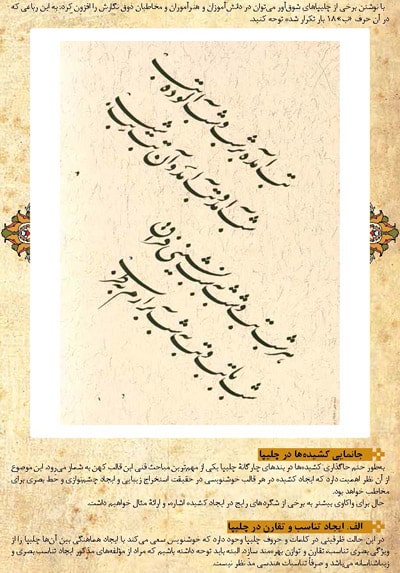 با نوشتن برخی از چلیپاهای شوق‌آور می‌توان در دانش‌آموزان و هنرآموران و مخاطبان ذوق نگارش را افزون کرد؛ به این رباعی که
در آن حرف «ب» ۱۸ بار تکرار شده توجه کنید.
تب آمده هر شب و شب آلوده تب
شب آمد و تب آمد و آن تب شب
هر شب تب و شب به شب نشینی فراق
شب با تب و تب به شب
جانمایی کشیده‌ها در چلیپا
به‌طور حتم جاگذاری کشیده‌ها در بندهای چارگانهٔ چلیپا یکی از مهم‌ترین مباحث فنی این قالب کهن به شمار می‌رود. این موضوع
از آن نظر اهمیت دارد که ایجاد کشیده در هر قالب خوشنویسی در حقیقت استخراج زیبایی و ایجاد چشم‌نوازی و حظ بصری برای
مخاطب خواهد بود.
حال برای واکاوی بیشتر به برخی از شگردهای رایج در ایجاد کشیده اشاره، و ارائهٔ مثال خواهیم داشت.
الف. ایجاد تناسب و تقارن در چلیپا
در این حالت ظرفیتی در کلمات و حروف چلیپا وجود دارد که خوشنویس سعی می‌کند با ایجاد هماهنگی بین آن‌ها چلیپا را از
ویژگی بصری تناسب، تقارن و توازن بهره‌مند سازد. البته باید توجه داشته باشیم که مراد از مؤلفه‌های مذکور ایجاد تناسب بصری و
زیباشناسانه می‌باشد و صرفاً تناسبات هندسی مدّ نظر نیست.